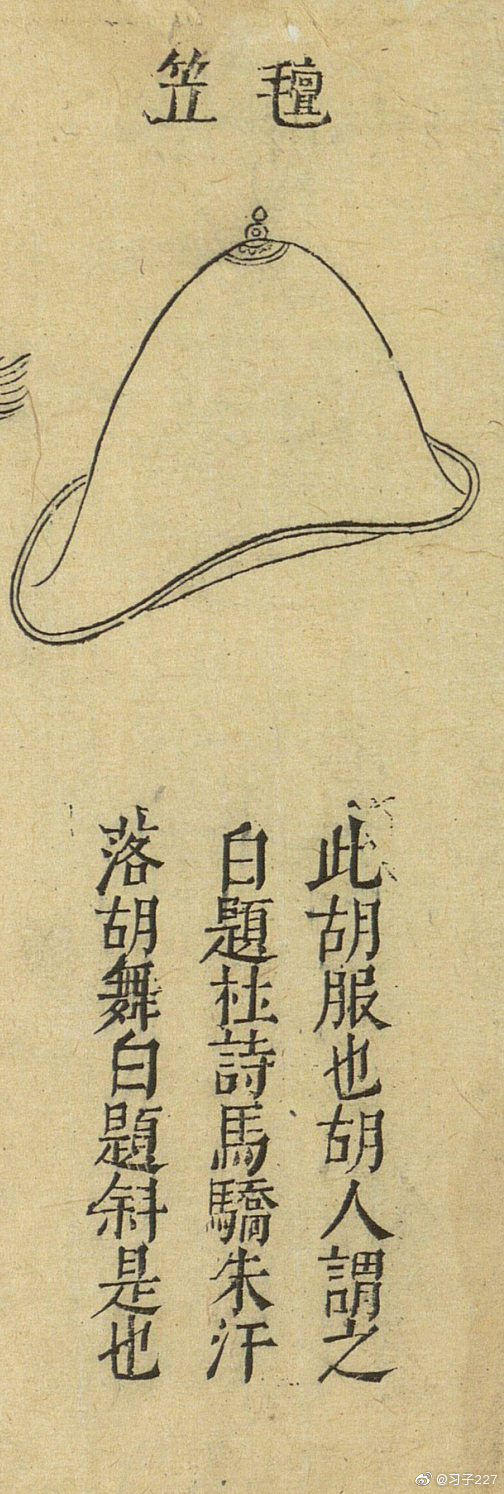 氊笠
此胡服也胡人謂之
白題杜詩馬驕朱汗
落胡舞白題斜是也
@习子227